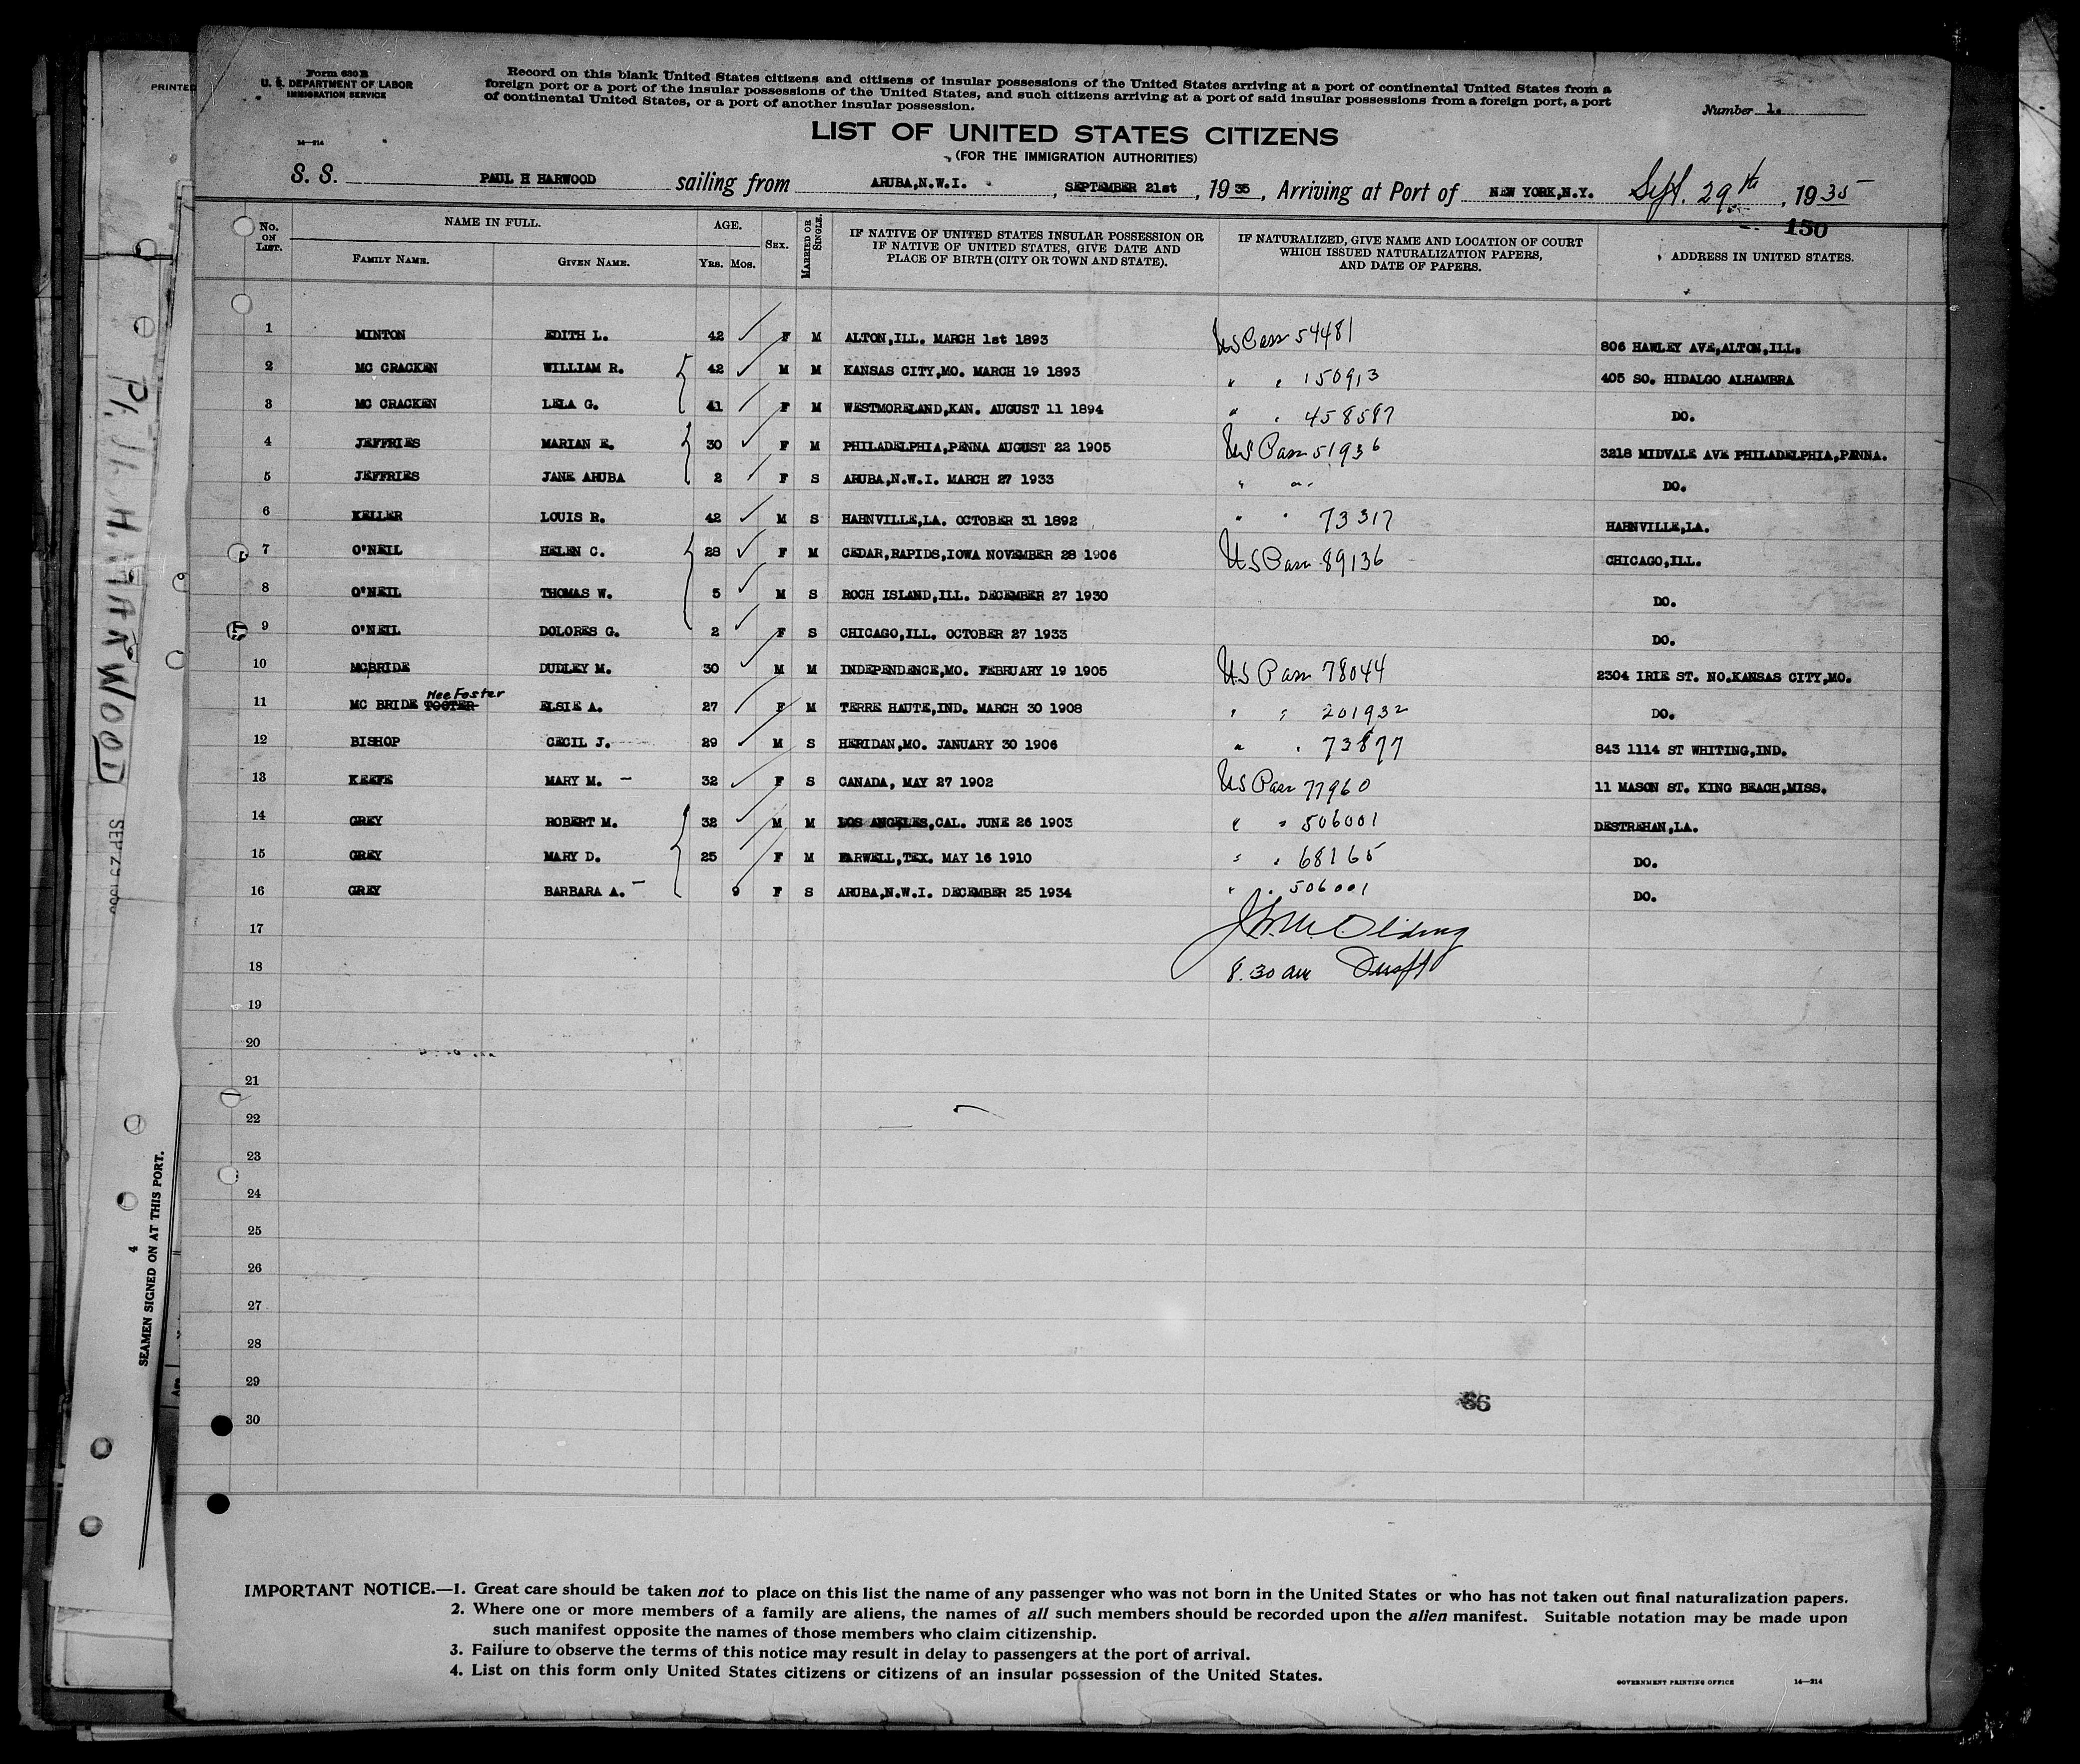 PRINTED
Form 630 B
U. S. DEPARTMENT OF LABOR
IMMIGRATION SERVICE
14—214
Record on this blank United States citizens and citizens of insular possessions of the United States arriving at a port of continental United States from a
foreign port or a port of the insular possessions of the United States, and such citizens arriving at a port of said insular possessions from a foreign port, a port
of continental United States, or a port of another insular possession.
Number 1.
LIST OF UNITED STATES CITIZENS
(FOR THE IMMIGRATION AUTHORITIES)
S. S. PAUL H HARWOOD sailing from ARUBA,N.W.I. , SEPTEMBER 21st , 19 35 , Arriving at Port of NEW YORK,N.Y. Sept. 29th , 19 35
150
No. ON LIST. NAME IN FULL. FAMILY NAME. GIVEN NAME. AGE. YRS. MOS. SEX. MARRIED OR SINGLE. IF NATIVE OF UNITED STATES INSULAR POSSESSION OR IF NATIVE OF UNITED STATES, GIVE DATE AND PLACE OF BIRTH (CITY OR TOWN AND STATE). IF NATURALIZED, GIVE NAME AND LOCATION OF COURT WHICH ISSUED NATURALIZATION PAPERS, AND DATE OF PAPERS. ADDRESS IN UNITED STATES.
1 MINTON EDITH L. 42 F M ALTON,ILL. MARCH 1st 1893 US Pass 54481 806 HAWLEY AVE,ALTON,ILL.
2 MC CRACKEN WILLIAM R. 42 M M KANSAS CITY,MO. MARCH 19 1893 " " 150913 405 SO. HIDALGO ALHAMBRA
3 MC CRACKEN LELA G. 41 F M WESTMORELAND,KAN. AUGUST 11 1894 " " 458587 DO.
4 JEFFRIES MARIAN E. 30 F M PHILADELPHIA,PENNA AUGUST 22 1905 US Pass 51936 3218 MIDVALE AVE PHILADELPHIA,PENNA.
5 JEFFRIES JANE ARUBA 2 F S ARUBA,N.W.I. MARCH 27 1933 " " DO.
6 KELLER LOUIS R. 42 M S HAHNVILLE,LA. OCTOBER 31 1892 " " 73317 HAHNVILLE,LA.
7 O'NEIL HELEN C. 28 F M CEDAR,RAPIDS,IOWA NOVEMBER 28 1906 US Pass 89136 CHICAGO,ILL.
8 O'NEIL THOMAS W. 5 M S ROCH ISLAND,ILL. DECEMBER 27 1930 DO.
9 O'NEIL DOLORES G. 2 F S CHICAGO,ILL. OCTOBER 27 1933 DO.
10 MCBRIDE DUDLEY M. 30 M M INDEPENDENCE,MO. FEBRUARY 19 1905 US Pass 78044 2304 IRIE ST. NO.KANSAS CITY,MO.
Nee Foster
11 MC BRIDE TOOTER ELSIE A. 27 F M TERRE HAUTE,IND. MARCH 30 1908 " " 201932 DO.
12 BISHOP CECIL J. 29 M S HERIDAN,MO. JANUARY 30 1906 " " 73877 843 1114 ST WHITING,IND.
13 KEEFE MARY M. — 32 F S CANADA, MAY 27 1902 US Pass 77960 11 MASON ST. KING BEACH,MISS.
14 GREY ROBERT M. 32 M M LOS ANGELES,CAL. JUNE 26 1903 " " 506001 DESTREHAN,LA.
15 GREY MARY D. 25 F M FARWELL,TEX. MAY 16 1910 " " 68165 DO.
16 GREY BARBARA A. — 9 F S ARUBA,N.W.I. DECEMBER 25 1934 " " 506001 DO.
17
18 8.30 am
19
20
21
22
23
24
25
26
27
28
29
66
30
IMPORTANT NOTICE.—1. Great care should be taken not to place on this list the name of any passenger who was not born in the United States or who has not taken out final naturalization papers.
2. Where one or more members of a family are aliens, the names of all such members should be recorded upon the alien manifest. Suitable notation may be made upon
such manifest opposite the names of those members who claim citizenship.
3. Failure to observe the terms of this notice may result in delay to passengers at the port of arrival.
4. List on this form only United States citizens or citizens of an insular possession of the United States.
GOVERNMENT PRINTING OFFICE 14—214
HARWOOD
4
SEAMEN SIGNED ON AT THIS PORT.